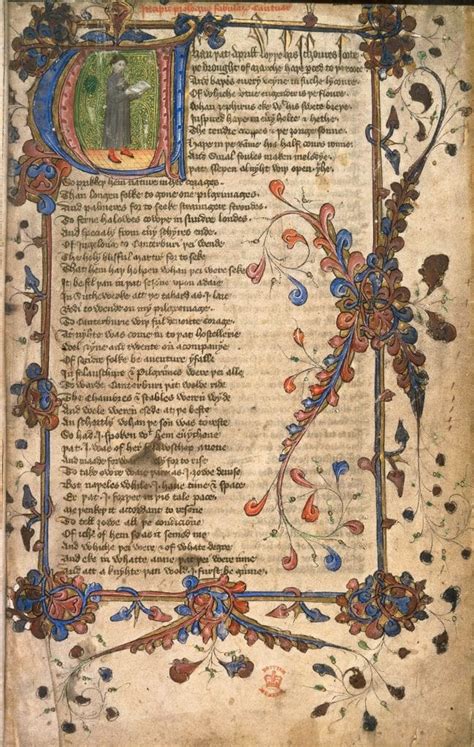 Incipit prologus fabularum Cantuar
Whan þat Aprill wyþ his schoures soote
þe drought of Marche haþe perced to þe roote
And baþed every veyne in suche lycoure
Of whiche vertue engendred is þe floure
Whan zephirus eke wiþ his swete breþe
Inspired haþe in every holte & heþe
The tendre croppes & þe ȝonge sonne
haþe in þe Ramme his half cours ronne
And smale foules maken melodye
þat slepen al nyht wiþ open yhe
So prikkeþ hem nature in her corages
Than longen folke to gone one pilgrimages
And palmeres for to seeke straunge strondes
To ferne halowes couþe in sundre londes
And specialy from every schyres ende
Of Ingelond to Canterburi þei wende
The holy blisful martir for to seke
That hem haþ holpen whan þei were seke
It befel þan in þat sesoun upon a daie
In Suthwerke att þe tabard as I laie
Redi to wende on my pilgrimage
To Canterburie wiþ ful devoute corage
At nyht was come in to þat hostellerie
Wel nyne and twenti on a companye
Of sondre folke be aventure yfalle
In felauschipe & pilgrimes were þei alle
To warde Canterburi þat wolde ride
The chambres & stables weren wyde
And wele weren esed at þe beste
And schortly whan þe son was to reste
So had I spoken wiþ hem everychone
þat I was of her felauschipe anone
And maade forwarde erly for to rise
To take oure waie þat as I ȝowe devise
Bot naþeles while I have time & space
Er þat I forþer in þis tale pace
Me þenkeþ it accordant to resoun
To tell ȝowe all þe condicione
Of iche of hem so as it semed me
And whiche þei were & of what degre
And eke in whatte araie þat þei were inne
And att a knyhte þan wold I furst beginne
BRITISH
MUSEUM